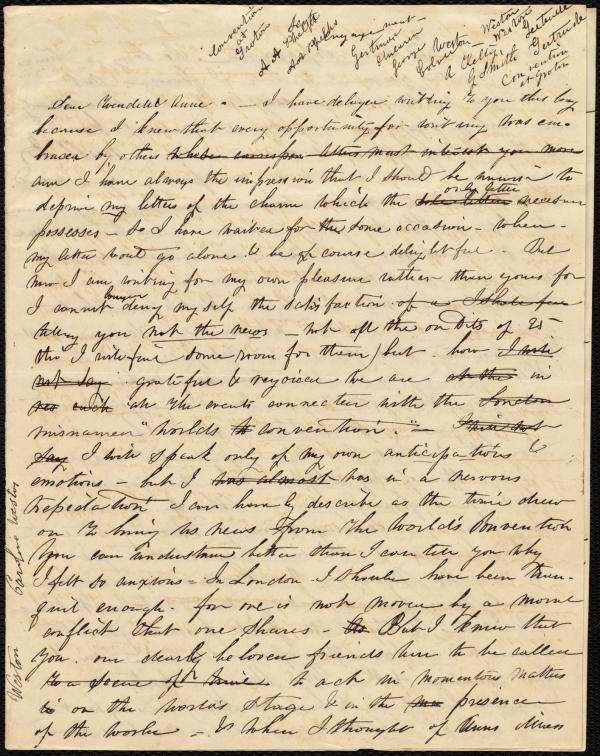 Convention
at
Groton
A A Phelps
engagement
Gertrude
George Weston
Weston
Gertrude
G Smith
Gertrude
Convention
at Groton
Dear Wendell & Anne. — I have delayed writing to you this long
because I knew that every opportunity for writing was em-
braced by others letters must interest you more
and I have always the impression that I should be unwise to
deprive my letter of the charm which the only letter
possesses — So I have waited for the some occasion — when
my letter wout go alone & be of course delightful. But
now I am writing for my own pleasure rather than yours for
I cannot however deny my self the satisfaction of
telling you not the news — not all the on dits of 25
(tho I will find some room for them) but how I will
not say grateful & rejoiced we are in
at the events connected with the London
misnamed "worlds convention". —
say I will speak only of my own anticipations &
emotions — but I was almost was in a nervous
trepidation I can hardly describe as the time drew
on to bring us news from the World's Convention
You can understand better than I can tell you why
I felt so anxious — In London I should have been tran-
quil enough — for one is not moved by a moral
conflict that one shares — But I knew that
you our dearly beloved friends were to be called
to a scene of to act in momentous matters
on the world's stage & in the presence
of the world — & when I thought of Anns illness
Weston Caroline Weston